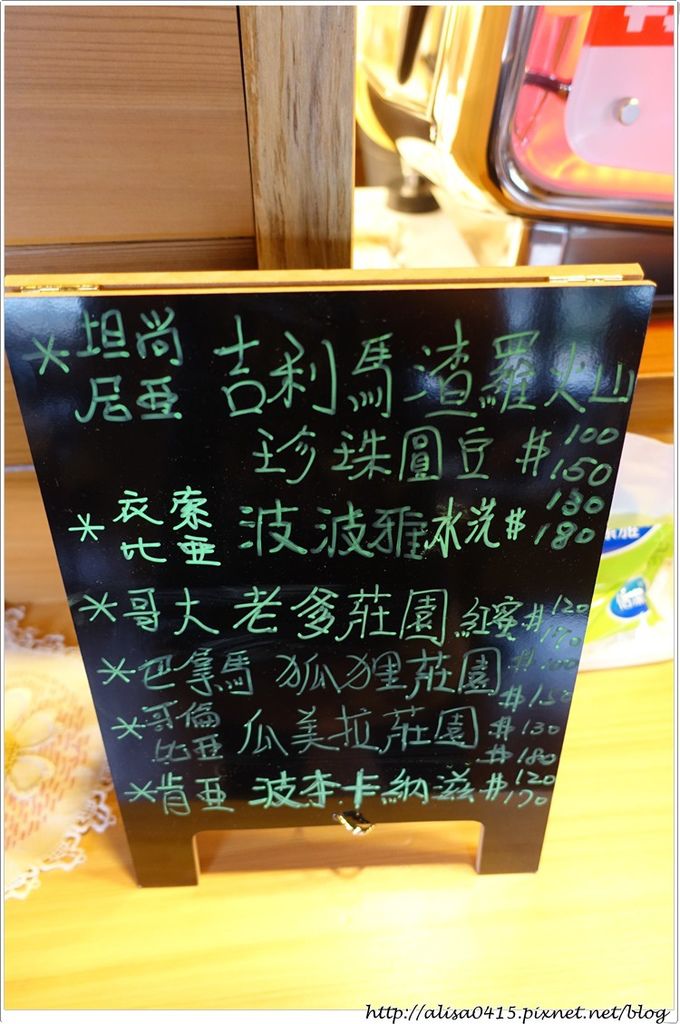 *坦尚尼亞 吉利馬渣羅火山
珍珠圓豆 #100 150
*衣索比亞 波波雅水洗 #130 180
*哥大老爹莊園 紅蜜 #120 170
*巴拿馬 狐狸莊園 #100 #150
*哥倫比亞 瓜美拉莊園 #130 #180
*肯亞 波李卡納滋 #120 170
http://alisa0415.pixnet.net/blog